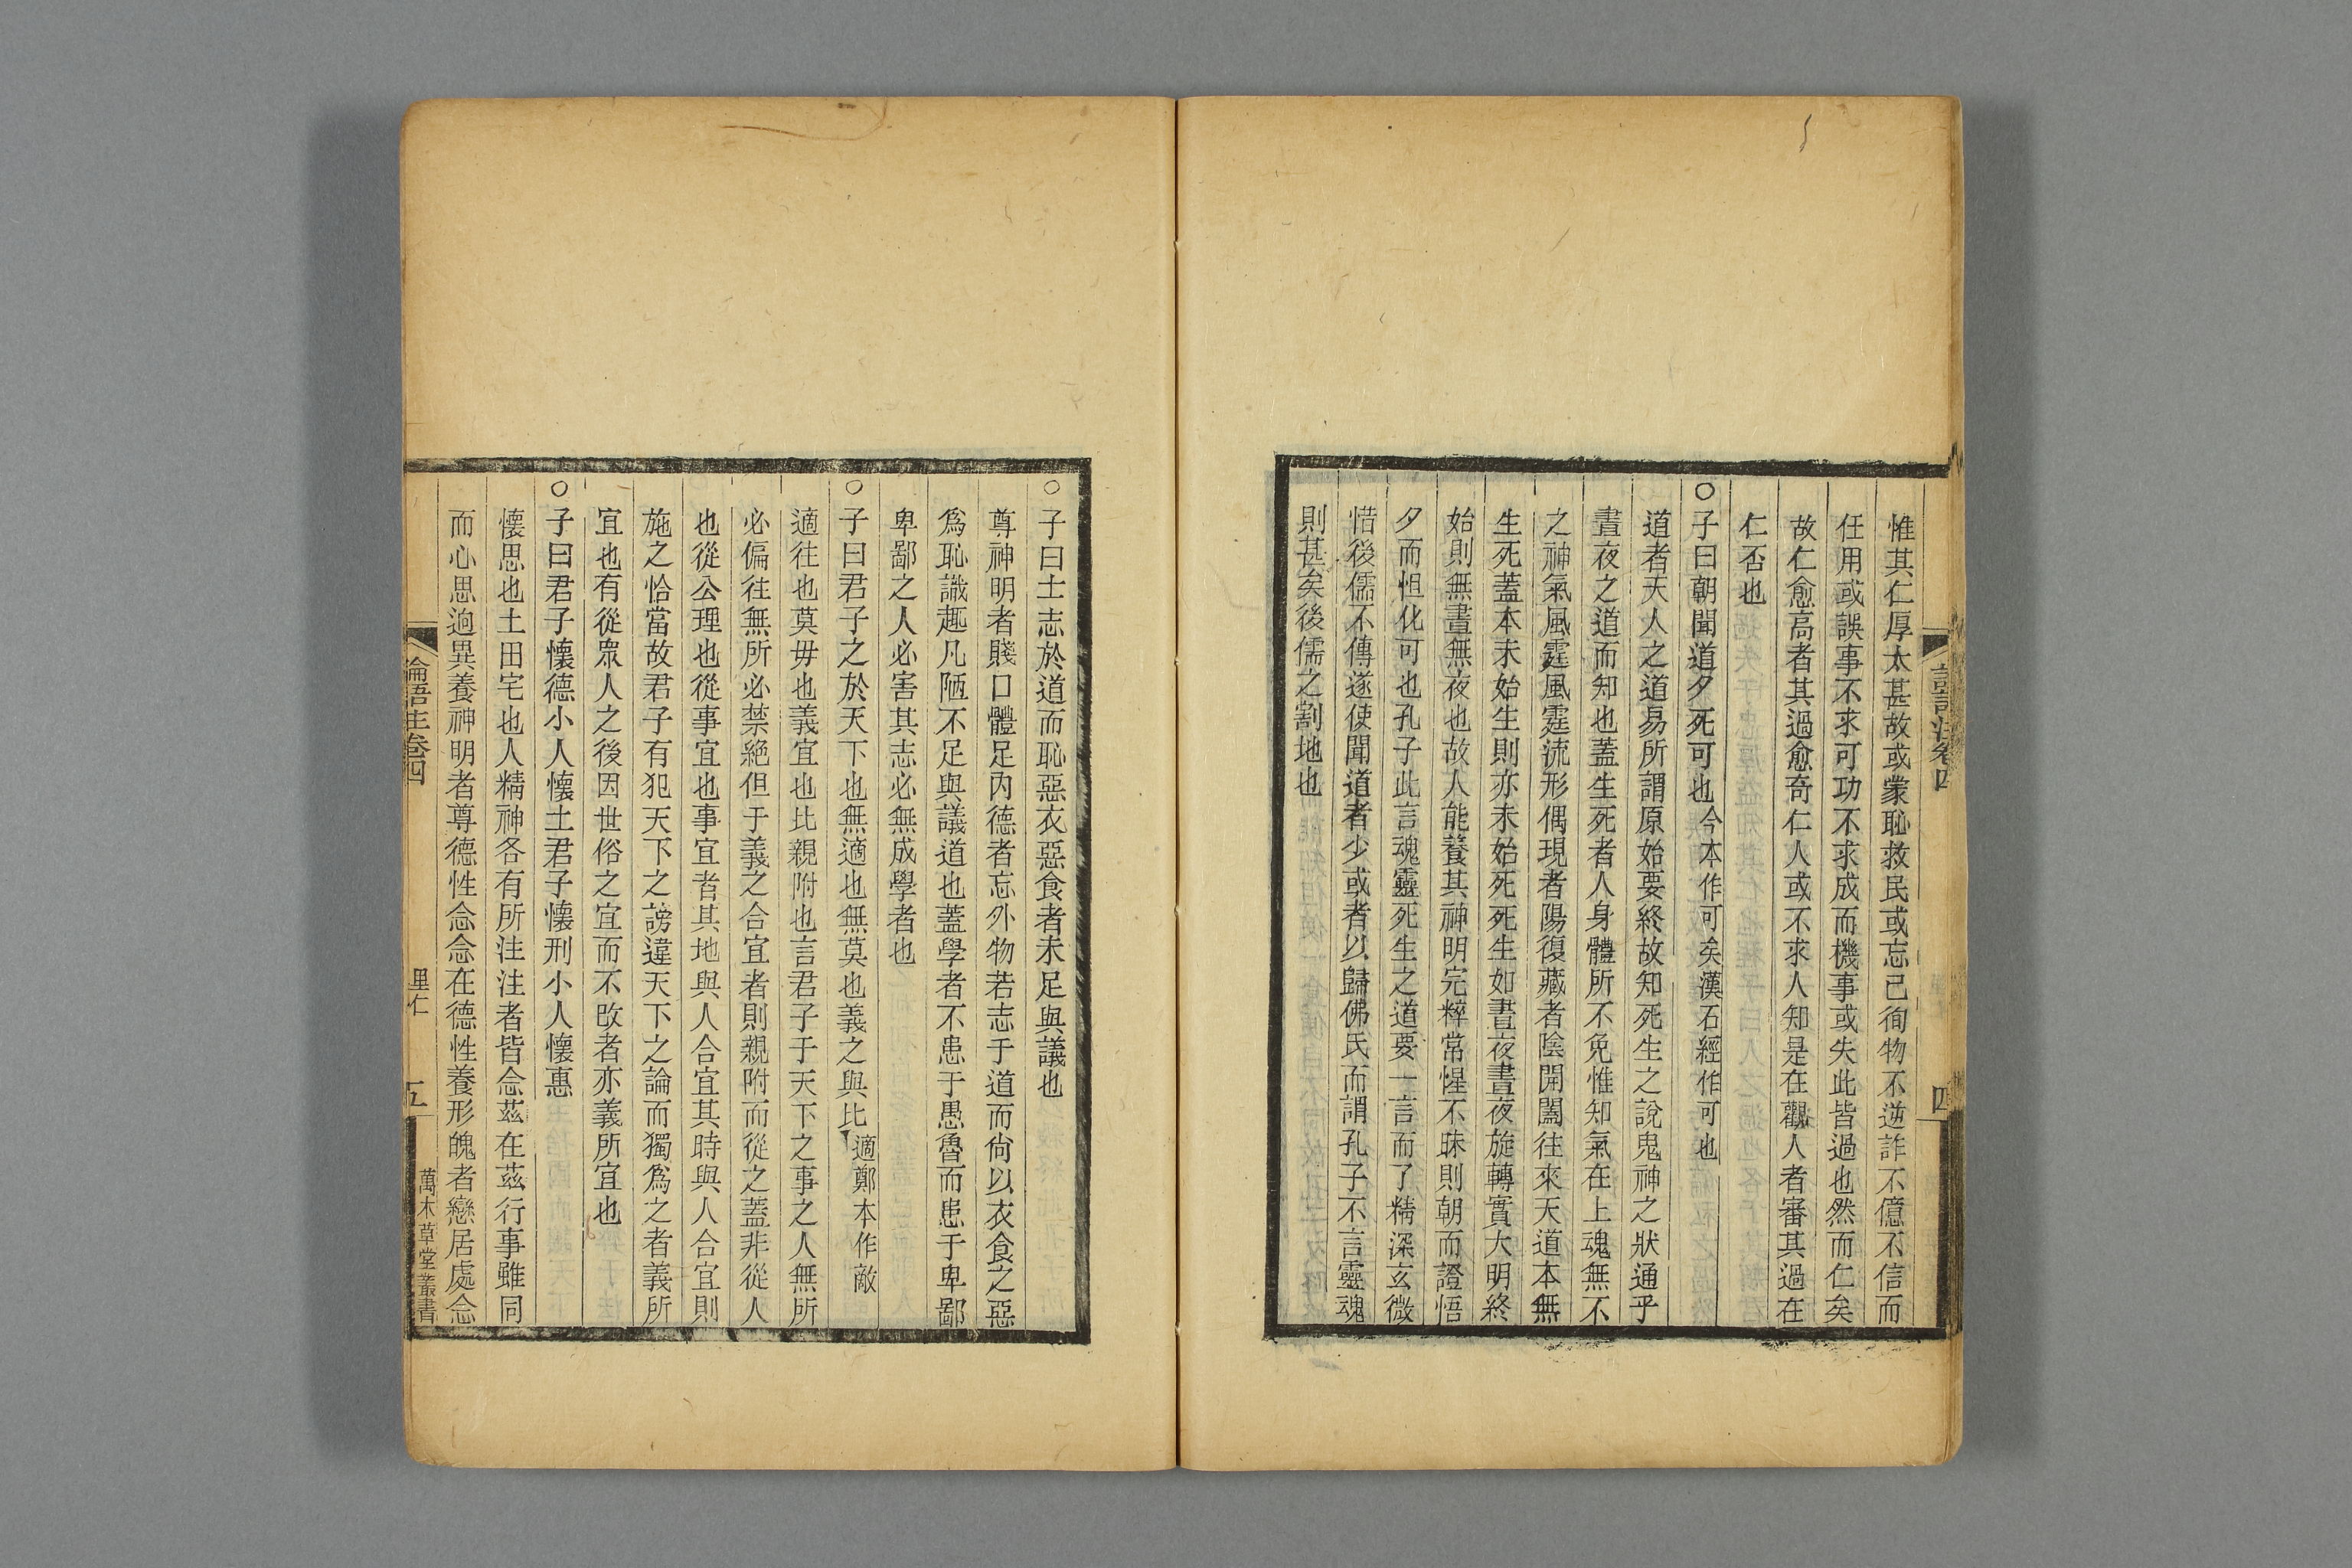 惟其仁厚太甚故或蒙恥救民或忘己徇物不逆詐不億不信而
任用或誤事不求可功不求成而機事或失此皆過也然而仁矣
故仁愈高者其過愈奇仁人或不求人知是在觀人者審其過在
仁否也
○子曰朝聞道夕死可也今本作可矣漢石經作可也
道者天人之道易所謂原始要終故知死生之說鬼神之狀通乎
晝夜之道而知也蓋生死者人身體所不免惟知氣在上魂無不
之神氣風霆風霆流形偶現者陽復藏者陰開闔往來天道本無
生死蓋本未始生則亦未始死死生如晝夜晝夜旋轉實大明終
始則無晝無夜也故人能養其神明完粹常惺不昧則朝而證悟
夕而怛化可也孔子此言魂靈死生之道要一言而了精深玄微
惜後儒不傳遂使聞道者少或者以歸佛氏而謂孔子不言靈魂
則甚矣後儒之割地也
四
○子曰士志於道而恥惡衣惡食者未足與議也
尊神明者賤口體足內德者忘外物若志于道而尙以衣食之惡
爲恥識趣凡陋不足與議道也蓋學者不患于愚魯而患于卑鄙
卑鄙之人必害其志必無成學者也
○子曰君子之於天下也無適也無莫也義之與比適鄭本作敵
適往也莫毋也義宜也比親附也言君子于天下之事之人無所
必偏往無所必禁絕但于義之合宜者則親附而從之蓋非從人
也從公理也從事宜也事宜者其地與人合宜其時與人合宜則
施之恰當故君子有犯天下之謗違天下之論而獨爲之者義所
宜也有從眾人之後因世俗之宜而不改者亦義所宜也
○子曰君子懷德小人懷土君子懷刑小人懷惠
懷思也土田宅也人精神各有所注注者皆念茲在茲行事雖同
而心思逈異養神明者尊德性念念在德性養形魄者戀居處念
論語注卷四
里仁
五
萬木草堂叢書